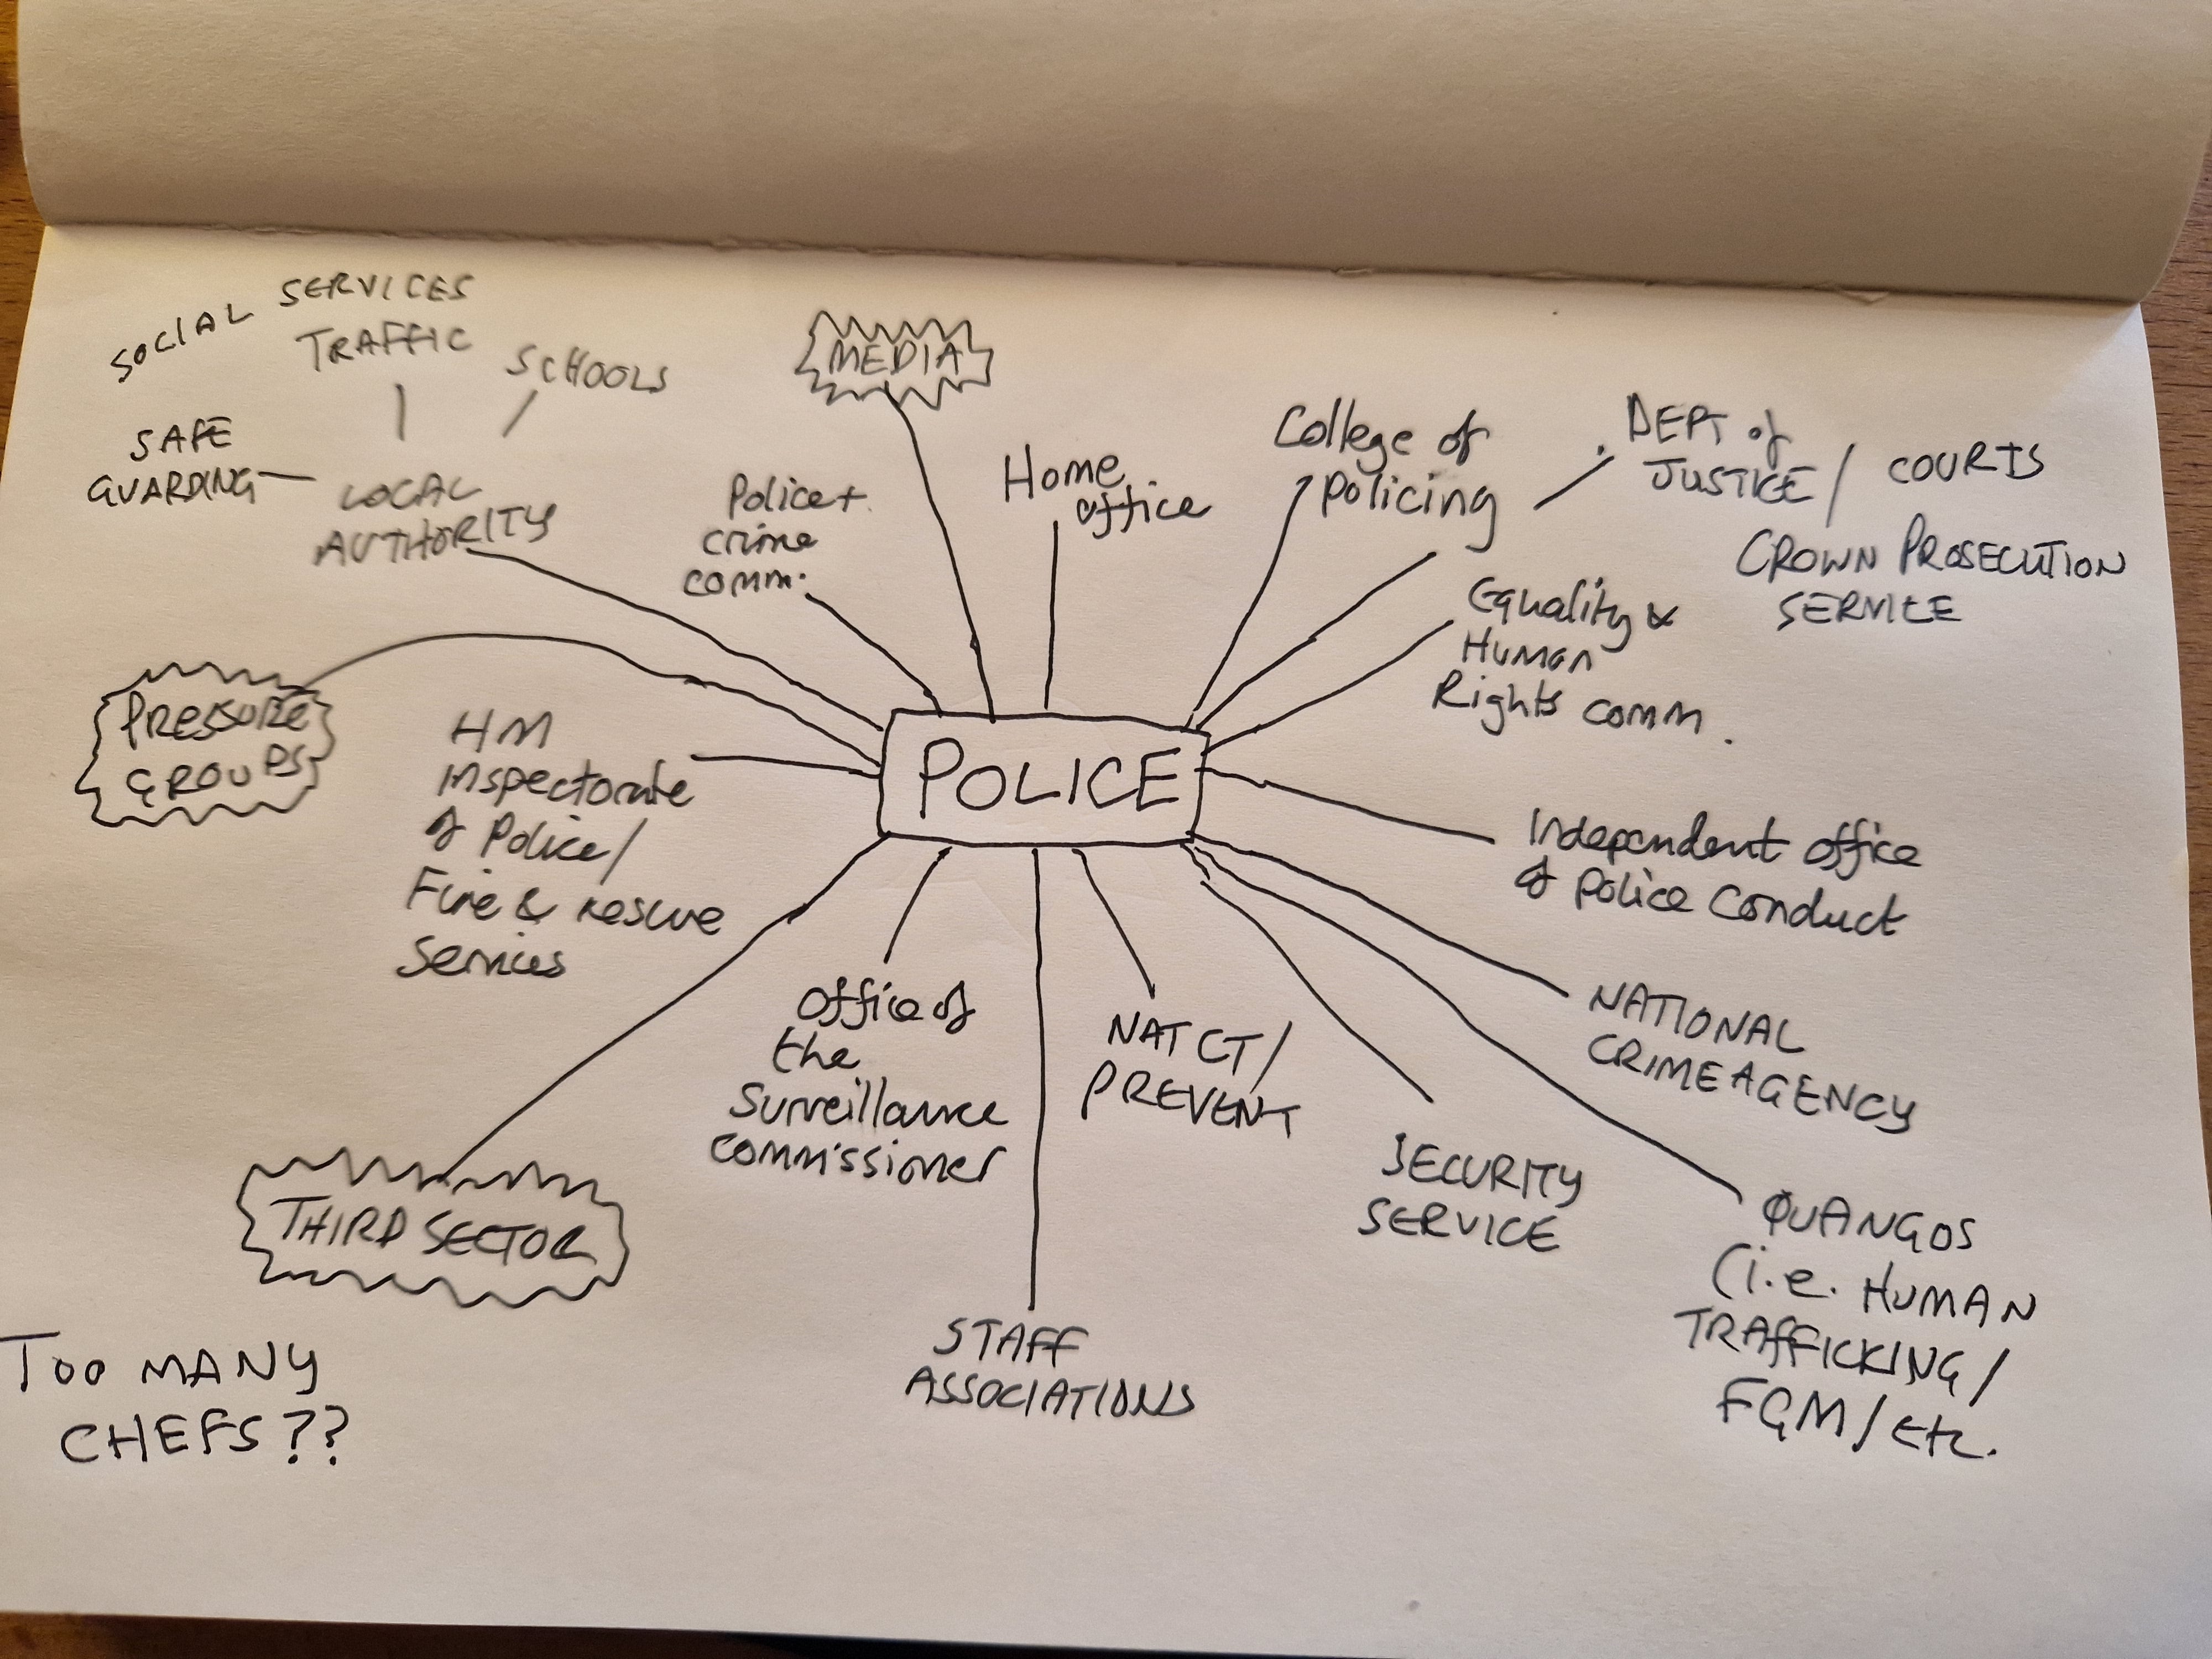 SOCIAL SERVICES
TRAFFIC
SCHOOLS
SAFE
GUARDING
LOCAL
AUTHORITY
Police +
crime
comm.
MEDIA
Home
office
College of
policing
DEPT of
JUSTICE / COURTS
CROWN PROSECUTION
SERVICE
Equality &
Human
Rights comm.
PRESSURE
GROUPS
HM
Inspectorate
of Police/
Fire & rescue
Services
POLICE
Independent office
of police conduct
NATIONAL
CRIME AGENCY
Office of
the
Surveillance
commissioner
NAT CT/
PREVENT
SECURITY
SERVICE
QUANGOS
(i.e. HUMAN
TRAFFICKING/
FGM/Etc.
THIRD SECTOR
STAFF
ASSOCIATIONS
TOO MANY
CHEFS??